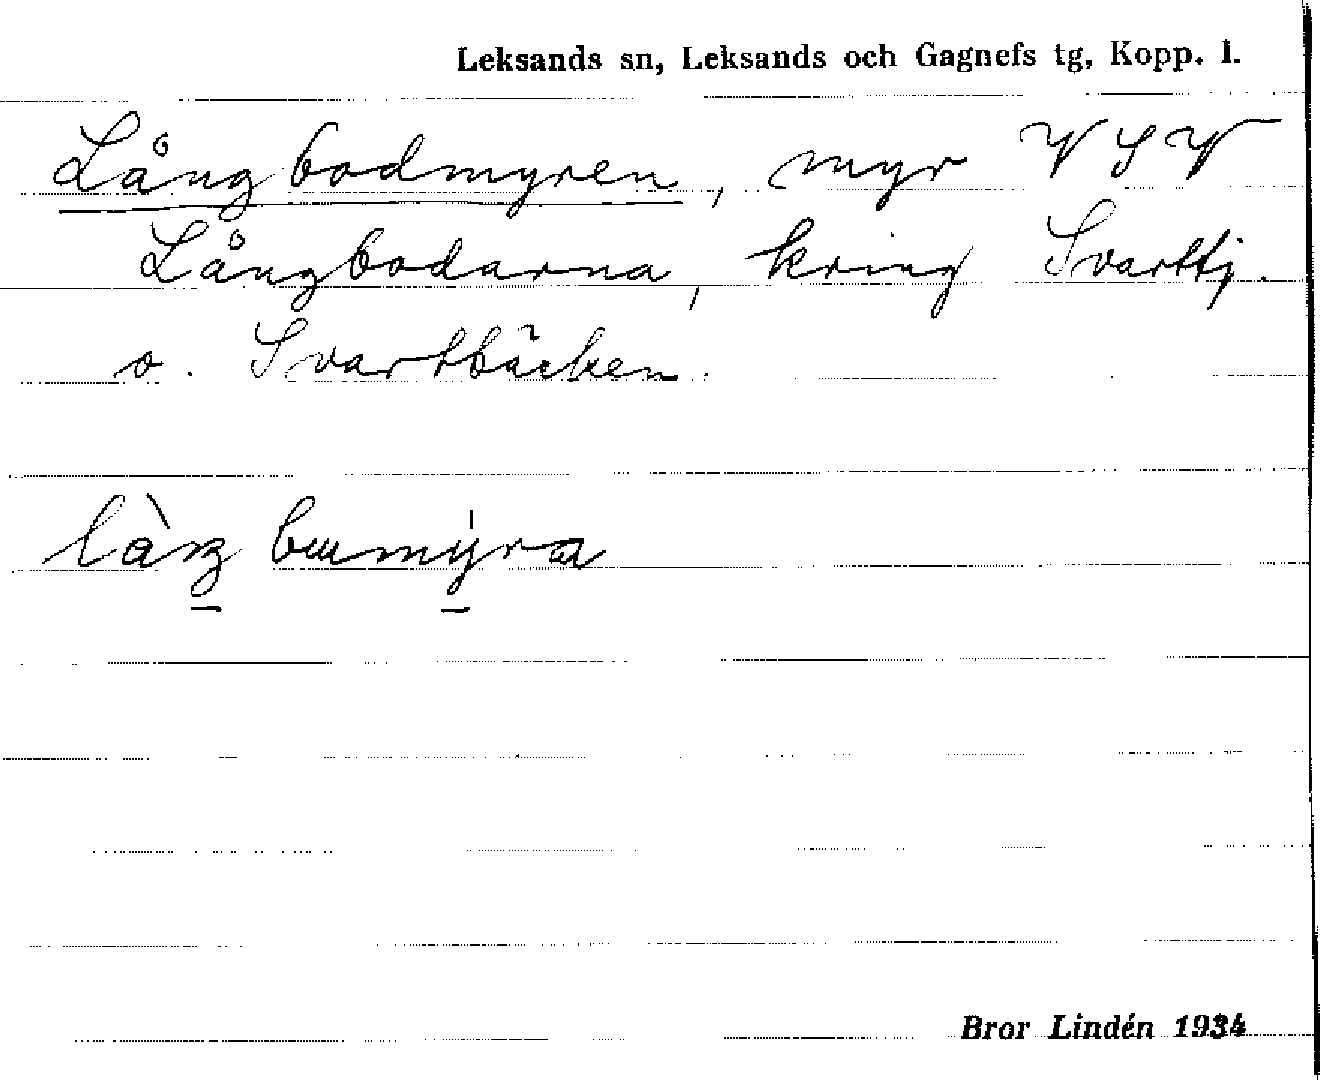 Leksands sn, Leksands och Gagnefs tg, Kopp. l.
Långbodmyren, myr VSV
Långbodarna, kring Svarttj.
o. Svartbäcken.
Bror Lindén 1934